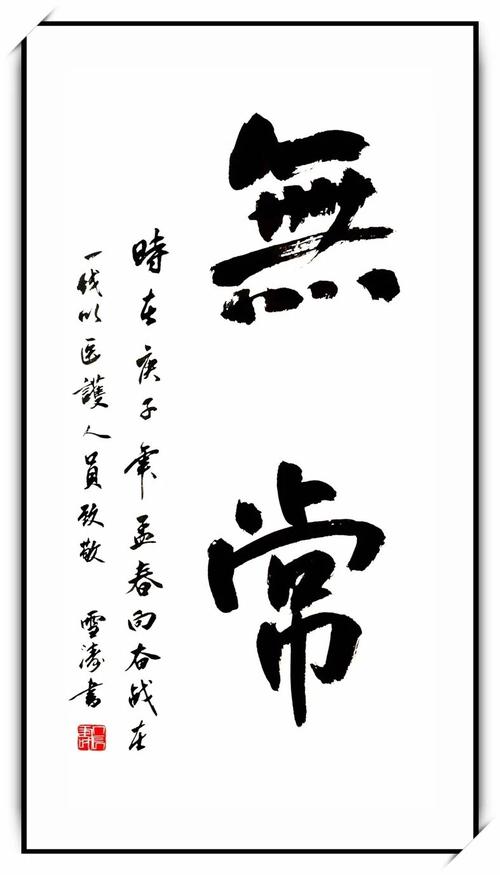 無常
時在庚子年孟春向奋战在
一线以医護人員致敬 雪涛書